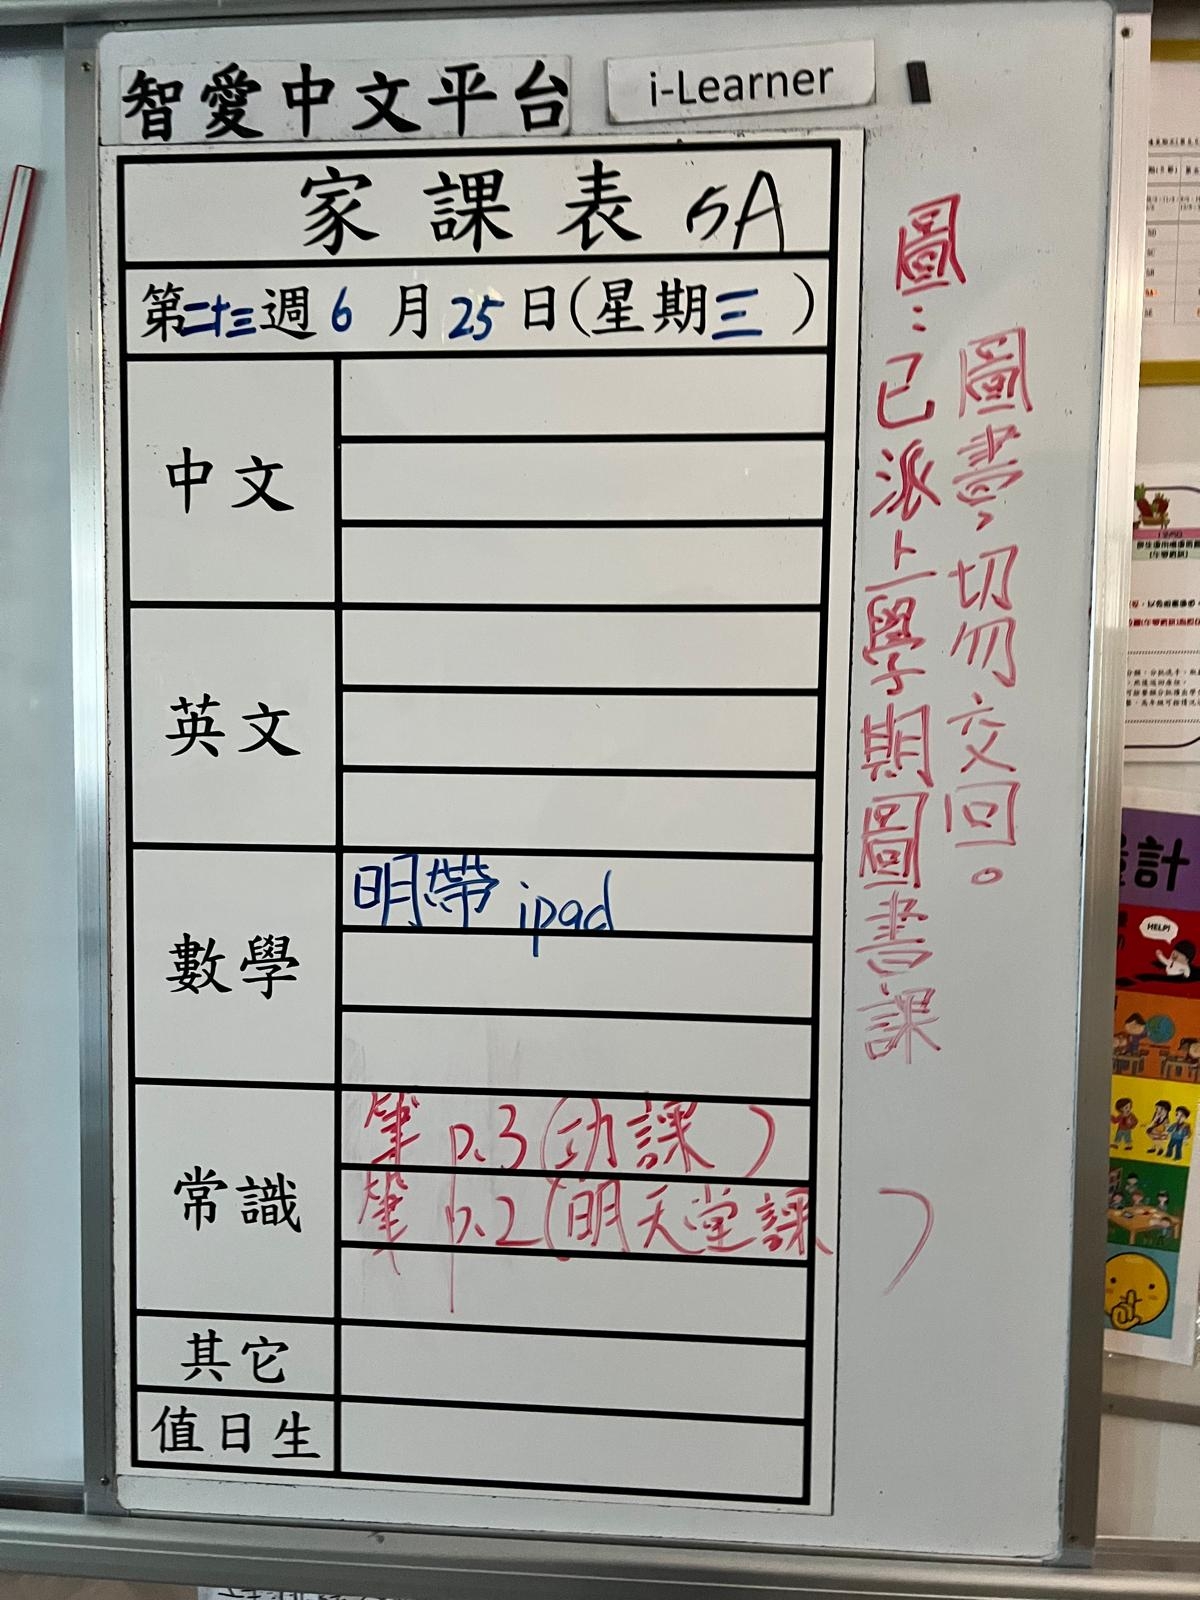 智愛中文平台
i-Learner
家課表 5A
第二十三週6月25日(星期三)
中文
英文
數學
明帶 ipad
常識
筆 p.3 (功課)
筆 p.2 (明天堂課)
其它
值日生
圖：已派上學期圖書課
圖書，切勿交回。
計
HELP!